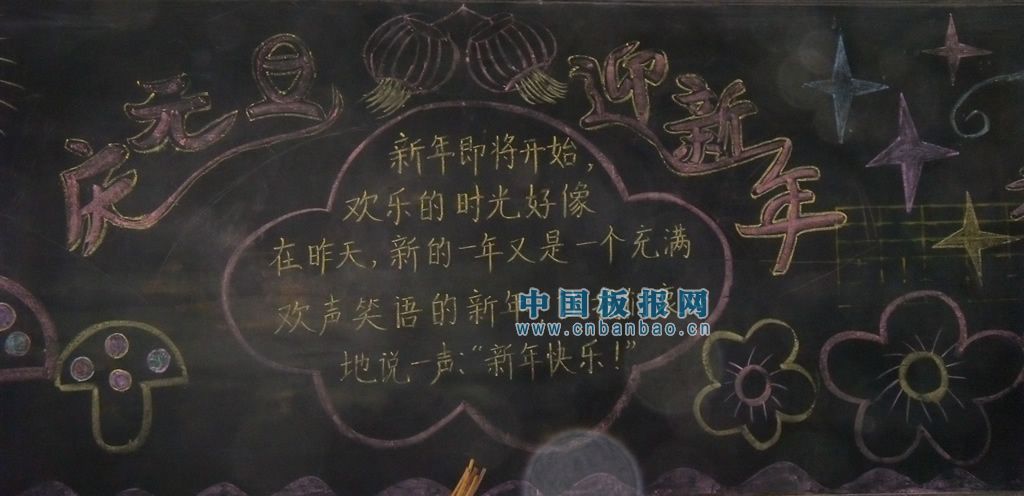 庆元旦
迎新年
新年即将开始,
欢乐的时光好像
在昨天,新的一年又是一个充满
欢声笑语的新年
地说一声:“新年快乐!”
中国板报网
www.cnbanbao.cn